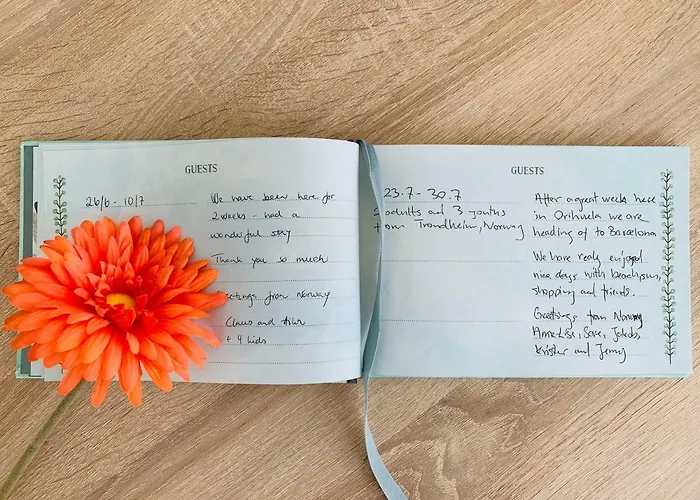 GUESTS
26/6 - 10/7
We have been here for
2 weeks - had a
wonderful stay
Thank you so much
eetings from Norway
Claus and
+ 4 kids
GUESTS
23.7 - 30.7
2 adults and 3 youths
from Trondheim, Norway
After a great weeks here
in Orihuela we are
heading of to Barcelona
We have realy enjoyed
nice days with beach, sun,
shopping and friends.
Greetings from Norway
Jakob,
and Jenny